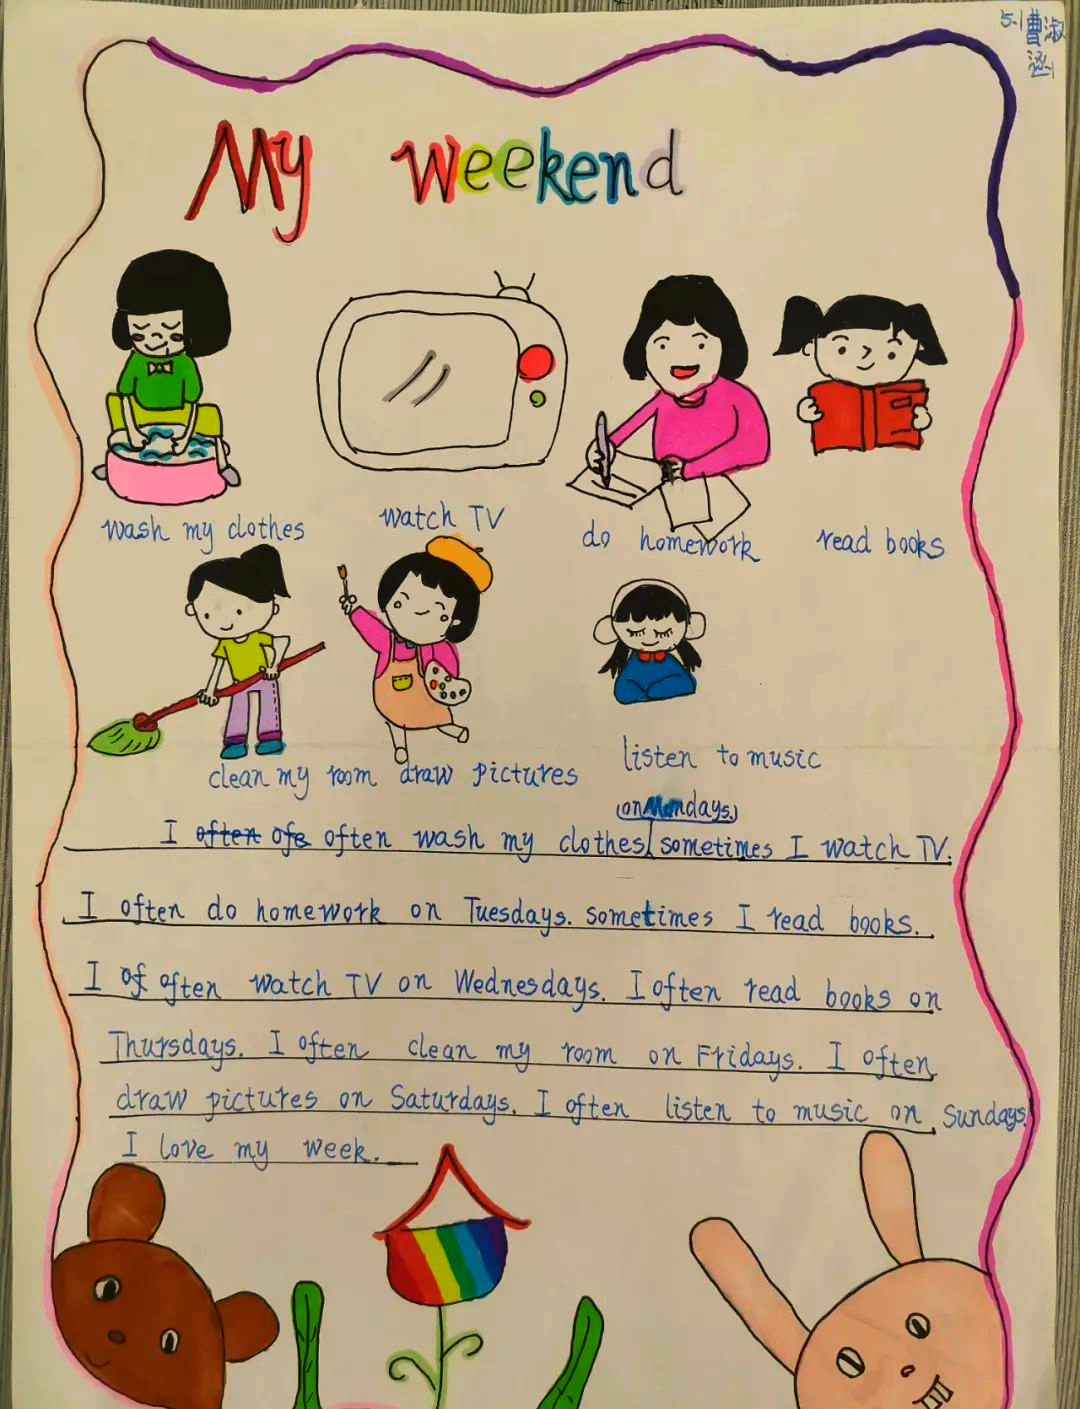 5-1曹淑
涵
My weekend
wash my clothes
watch TV
do homework
read books
clean my room
draw pictures
listen to music
on Mondays.
I often ofe often wash my clothes sometimes I watch TV.
I often do homework on Tuesdays. sometimes I read books.
I of often watch TV on Wednesdays. I often read books on
Thursdays. I often clean my room on Fridays. I often
draw pictures on Saturdays. I often listen to music on Sundays.
I love my week.